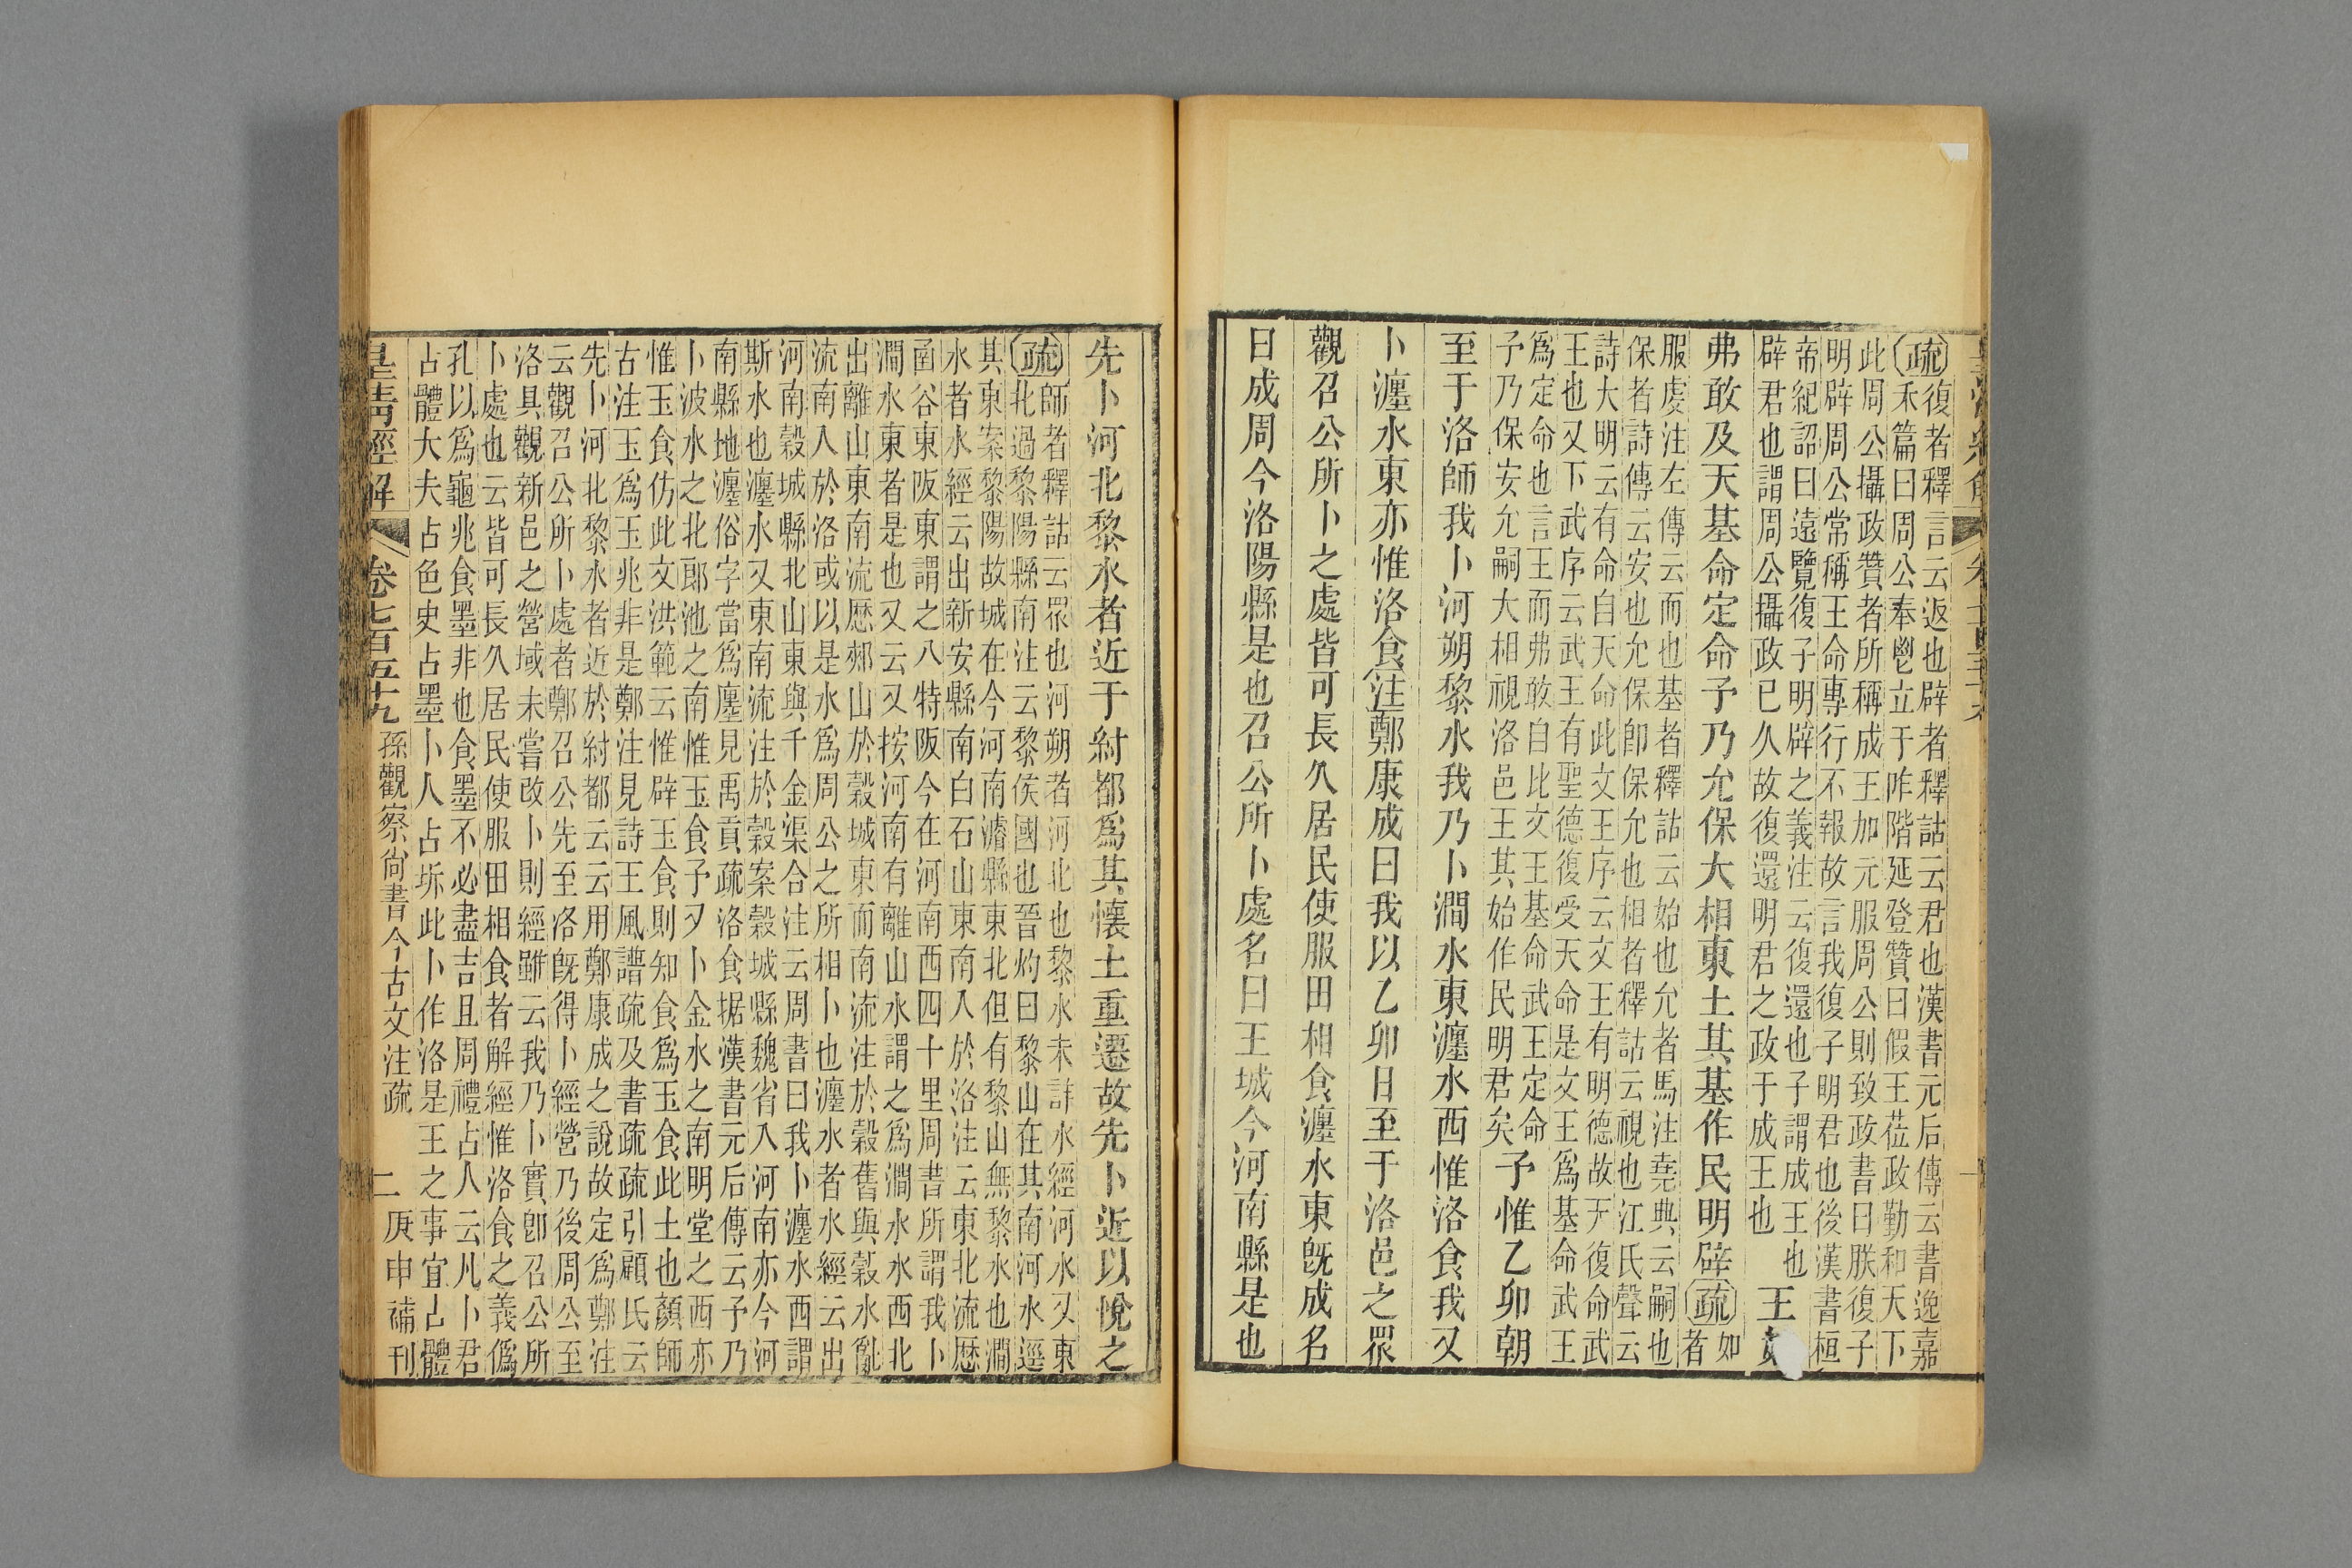 疏復者釋言云返也辟者釋詁云君也漢書元后傳云書逸嘉
禾篇曰周公奉鬯立于阼階延登贊曰假王莅政勤和天下
此周公攝政贊者所稱成王加元服周公則致政書曰朕復子
明辟周公常稱王命專行不報故言我復子明君也後漢書桓
帝紀詔曰遠覽復子明辟之義注云復還也子謂成王也
辟君也謂周公攝政已久故復還明君之政于成王也
王
弗敢及天基命定命予乃允保大相東土其基作民明辟疏如
者
服虔注左傳云而也基者釋詁云始也允者馬注堯典云嗣也
保者詩傳云安也允保卽保允也相者釋詁云視也江氏聲云
詩大明云有命自天命此文王序云文王有明德故天復命武
王也又下武序云武王有聖德復受天命是文王爲基命武王
爲定命也言王而弗敢自比文王基命武王定命
予乃保安允嗣大相視洛邑王其始作民明君矣
予惟乙卯朝
至于洛師我卜河朔黎水我乃卜澗水東瀍水西惟洛食我又
卜瀍水東亦惟洛食注鄭康成曰我以乙卯日至于洛邑之眾
觀召公所卜之處皆可長久居民使服田相食瀍水東旣成名
曰成周今洛陽縣是也召公所卜處名曰王城今河南縣是也
先卜河北黎水者近于紂都爲其懷土重遷故先卜近以悅之
疏師者釋詁云眾也河朔者河北也黎水未詳水經河水又東
北過黎陽縣南注云黎侯國也晉灼曰黎山在其南河水逕
其東案黎陽故城在今河南濬縣東北但有黎山無黎水也澗
水者水經云出新安縣南白石山東南入於洛注云東北流歷
函谷東阪東謂之八特阪今在河南西四十里周書所謂我卜
澗水東者是也又云又按河南有離山水謂之爲澗水水西北
出離山東南流歷郟山於穀城東而南流注於穀舊與穀水亂
流南入於洛或以是水爲周公之所相卜也瀍水者水經云出
河南穀城縣北山東與千金渠合注云周書曰我卜瀍水西謂
斯水也瀍水又東南流注於穀案穀城縣魏省入河南亦今河
南縣地瀍俗字當爲廛見禹貢疏洛食据漢書元后傳云予乃
卜波水之北郎池之南惟玉食予又卜金水之南明堂之西亦
惟玉食仿此文洪範云惟辟玉食則知食爲玉食此土也顏師
古注玉爲玉兆非是鄭注見詩王風譜疏及書疏疏引顧氏云
先卜河北黎水者近於紂都云云用鄭康成之說故定爲鄭注
云觀召公所卜處者鄭召公先至洛旣得卜經營乃後周公至
洛具觀新邑之營域未嘗改卜則經雖云我乃卜實卽召公所
卜處也云皆可長久居民使服田相食者解經惟洛食之義僞
孔以爲龜兆食墨非也食墨不必盡吉且周禮占人云凡卜君
占體大夫占色史占墨卜人占坼此卜作洛是王之事宜占體
皇清經解 卷七百五十九 孫觀察尙書今古文注疏 二 庚申補刊